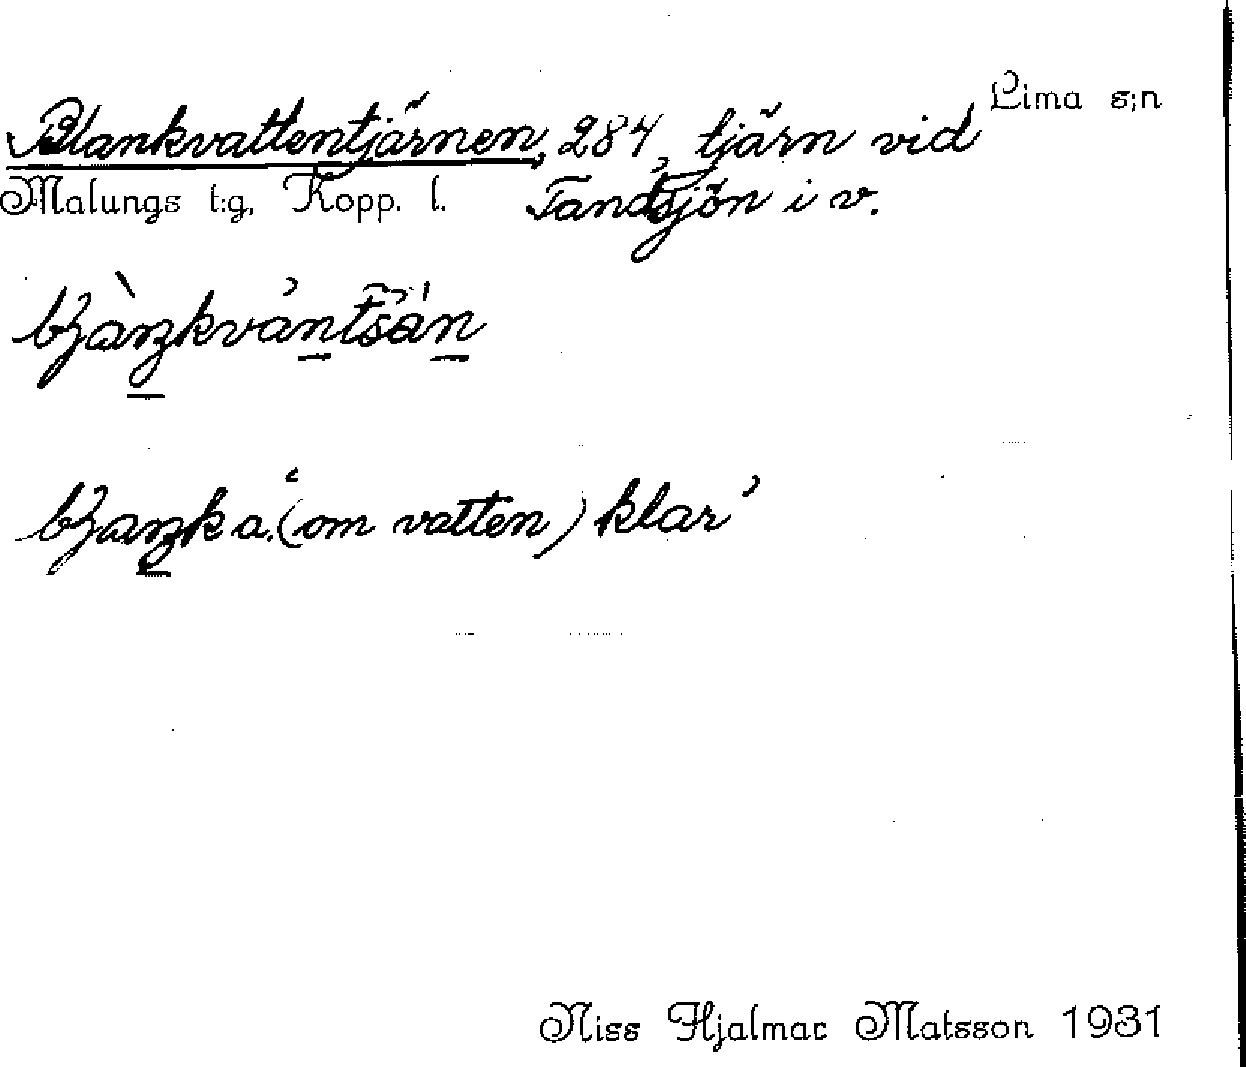 Lima s:n
Blankvattentjärnen, 284, tjärn vid
Malungs t:g, Kopp. l. Tandsjön i v.
a. (om vatten) 'klar'
Niss Hjalmar Matsson 1931